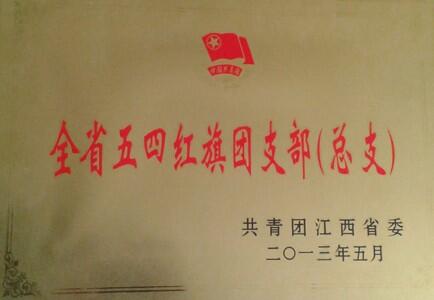 中国共青团
全省五四红旗团支部(总支)
共青团江西省委
二〇一三年五月